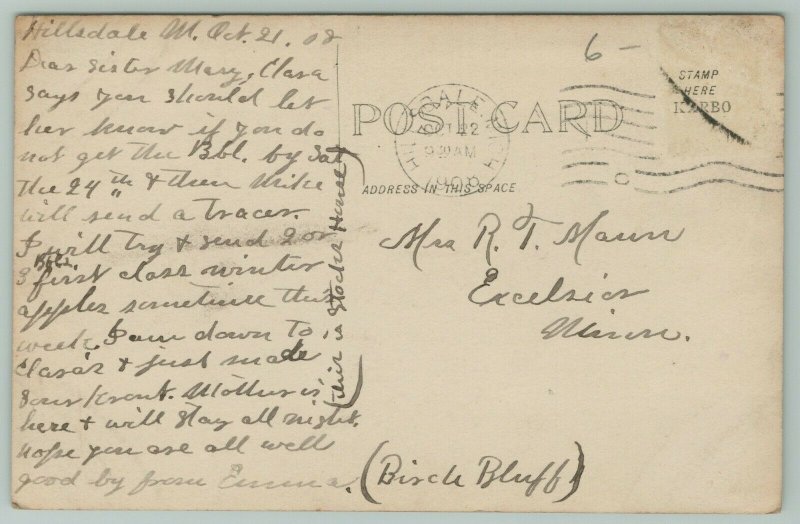 Hillsdale M. Oct. 21. 08
Dear Sister Mary, Clara
says you should let
her know if you do
not get the Bbl. by Sat
the 24th & then Mike
will send a tracer.
I will try & send 2 or
3 Bbls first class winter
apples sometime this
week. I am down to
Clara's & just made
Sour krout. Mother is
here + will stay all night.
hope you are all well
good by from Emma.
6-
STAMP
HERE
KARBO
POST CARD
HILLSDALE
OCT 22
9 30 AM
1908
MICH
ADDRESS IN THIS SPACE
Mrs R. T. Mann
Excelsior
Minn.
(Birch Bluff)